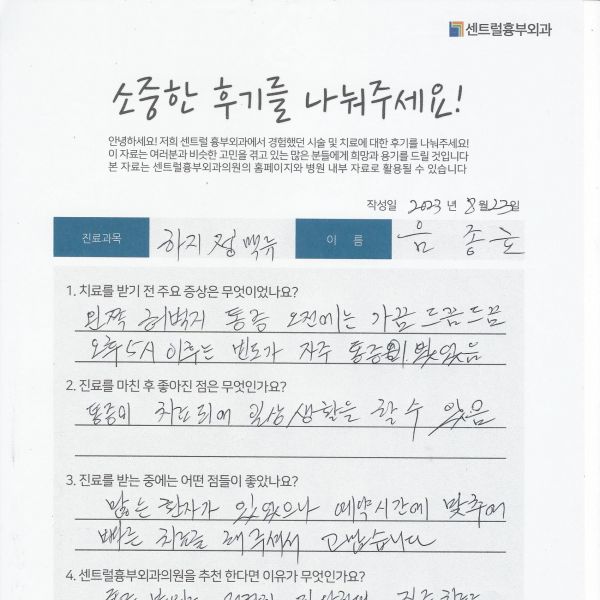 센트럴흉부외과
소중한 후기를 나눠주세요!
안녕하세요! 저희 센트럴 흉부외과에서 경험했던 시술 및 치료에 대한 후기를 나눠주세요!
이 자료는 여러분과 비슷한 고민을 겪고 있는 많은 분들에게 희망과 용기를 드릴 것입니다
본 자료는 센트럴흉부외과의원의 홈페이지와 병원 내부 자료로 활용될 수 있습니다
작성일 2023 년 8월 23일
진료과목 하지정맥류 이 름 음종호
1. 치료를 받기 전 주요 증상은 무엇이었나요?
왼쪽 허벅지 통증 오전에는 가끔 드끔드끔
오후 5시 이후는 빈도가 자주 통증이 있었음
2. 진료를 마친 후 좋아진 점은 무엇인가요?
통증이 치료되어 일상생활을 할 수 있음
3. 진료를 받는 중에는 어떤 점들이 좋았나요?
많는 환자가 있었으나 예약시간에 맞추어
빠른 치료를 해주셔서 고맙습니다
4. 센트럴흉부외과의원을 추천 한다면 이유가 무엇인가요?